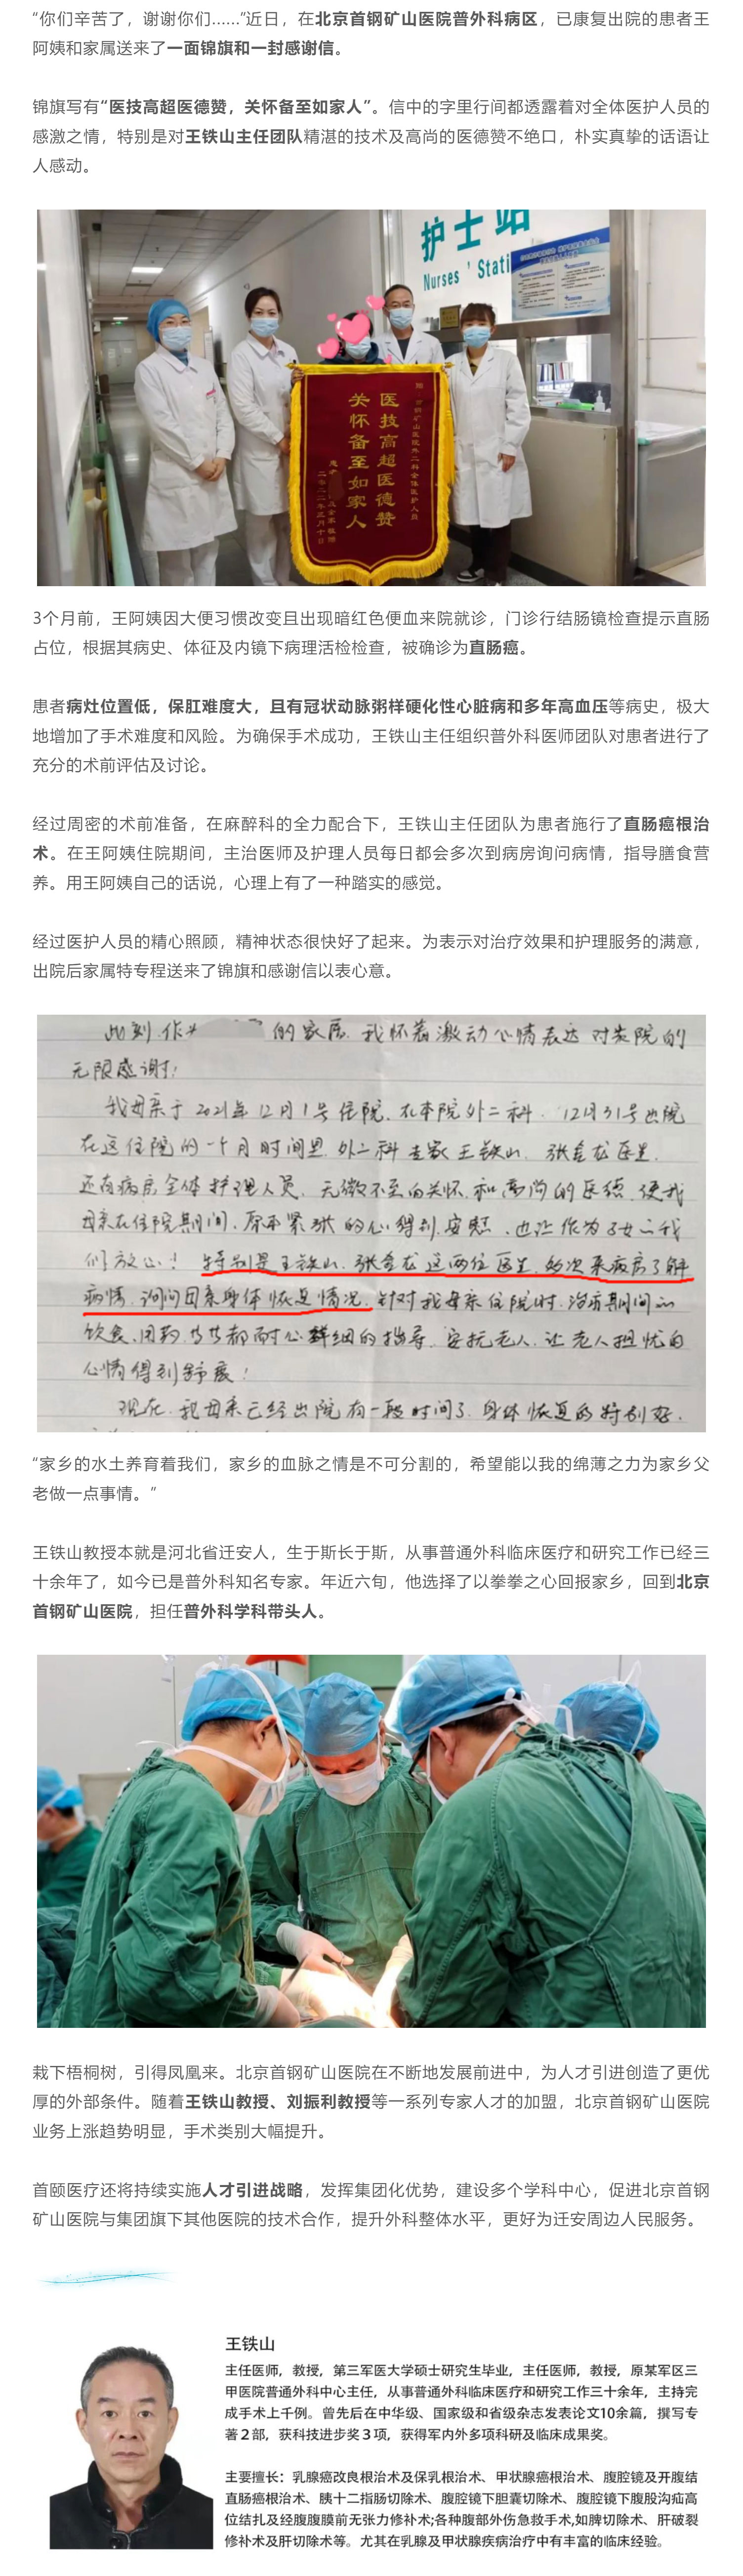 “你们辛苦了，谢谢你们......”近日，在北京首钢矿山医院普外科病区，已康复出院的患者王
阿姨和家属送来了一面锦旗和一封感谢信。
锦旗写有“医技高超医德赞，关怀备至如家人”。信中的字里行间都透露着对全体医护人员的
感激之情，特别是对王铁山主任团队精湛的技术及高尚的医德赞不绝口，朴实真挚的话语让
人感动。
护士站
Nurses' Stati
医技高超医德赞
关怀备至如家人
3个月前，王阿姨因大便习惯改变且出现暗红色便血来院就诊，门诊行结肠镜检查提示直肠
占位，根据其病史、体征及内镜下病理活检检查，被确诊为直肠癌。
患者病灶位置低，保肛难度大，且有冠状动脉粥样硬化性心脏病和多年高血压等病史，极大
地增加了手术难度和风险。为确保手术成功，王铁山主任组织普外科医师团队对患者进行了
充分的术前评估及讨论。
经过周密的术前准备，在麻醉科的全力配合下，王铁山主任团队为患者施行了直肠癌根治
术。在王阿姨住院期间，主治医师及护理人员每日都会多次到病房询问病情，指导膳食营
养。用王阿姨自己的话说，心理上有了一种踏实的感觉。
经过医护人员的精心照顾，精神状态很快好了起来。为表示对治疗效果和护理服务的满意，
出院后家属特专程送来了锦旗和感谢信以表心意。
此刻 作为 的家属 我怀着激动心情表达对贵院的
无限感谢！
我母亲于2021年12月1号住院，在本院外二科．12月31号出院
在这住院的一个月时间里 外二科 专家王铁山．张金龙医生．
还有病房全体护理人员．无微不至的关怀．和高尚的医德．使我
母亲在住院期间．原本紧张的心得到安慰．也让作为子女的我
们放心！ 特别是王铁山．张金龙这两位医生．多次来病房了解
病情．询问母亲身体恢复情况．针对我母亲住院时．治疗期间的
饮食、用药 都耐心详细的指导．安抚老人．让老人担忧的
心情得到舒展！
现在．我母亲已经出院有一段时间了．身体恢复的特别好．
“家乡的水土养育着我们，家乡的血脉之情是不可分割的，希望能以我的绵薄之力为家乡父
老做一点事情。”
王铁山教授本就是河北省迁安人，生于斯长于斯，从事普通外科临床医疗和研究工作已经三
十余年了，如今已是普外科知名专家。年近六旬，他选择了以拳拳之心回报家乡，回到北京
首钢矿山医院，担任普外科学科带头人。
栽下梧桐树，引得凤凰来。北京首钢矿山医院在不断地发展前进中，为人才引进创造了更优
厚的外部条件。随着王铁山教授、刘振利教授等一系列专家人才的加盟，北京首钢矿山医院
业务上涨趋势明显，手术类别大幅提升。
首颐医疗还将持续实施人才引进战略，发挥集团化优势，建设多个学科中心，促进北京首钢
矿山医院与集团旗下其他医院的技术合作，提升外科整体水平，更好为迁安周边人民服务。
王铁山
主任医师，教授，第三军医大学硕士研究生毕业，主任医师，教授，原某军区三
甲医院普通外科中心主任，从事普通外科临床医疗和研究工作三十余年，主持完
成手术上千例。曾先后在中华级、国家级和省级杂志发表论文10余篇，撰写专
著2部，获科技进步奖3项，获得军内外多项科研及临床成果奖。
主要擅长：乳腺癌改良根治术及保乳根治术、甲状腺癌根治术、腹腔镜及开腹结
直肠癌根治术、胰十二指肠切除术、腹腔镜下胆囊切除术、腹腔镜下腹股沟疝高
位结扎及经腹腹膜前无张力修补术;各种腹部外伤急救手术,如脾切除术、肝破裂
修补术及肝切除术等。尤其在乳腺及甲状腺疾病治疗中有丰富的临床经验。